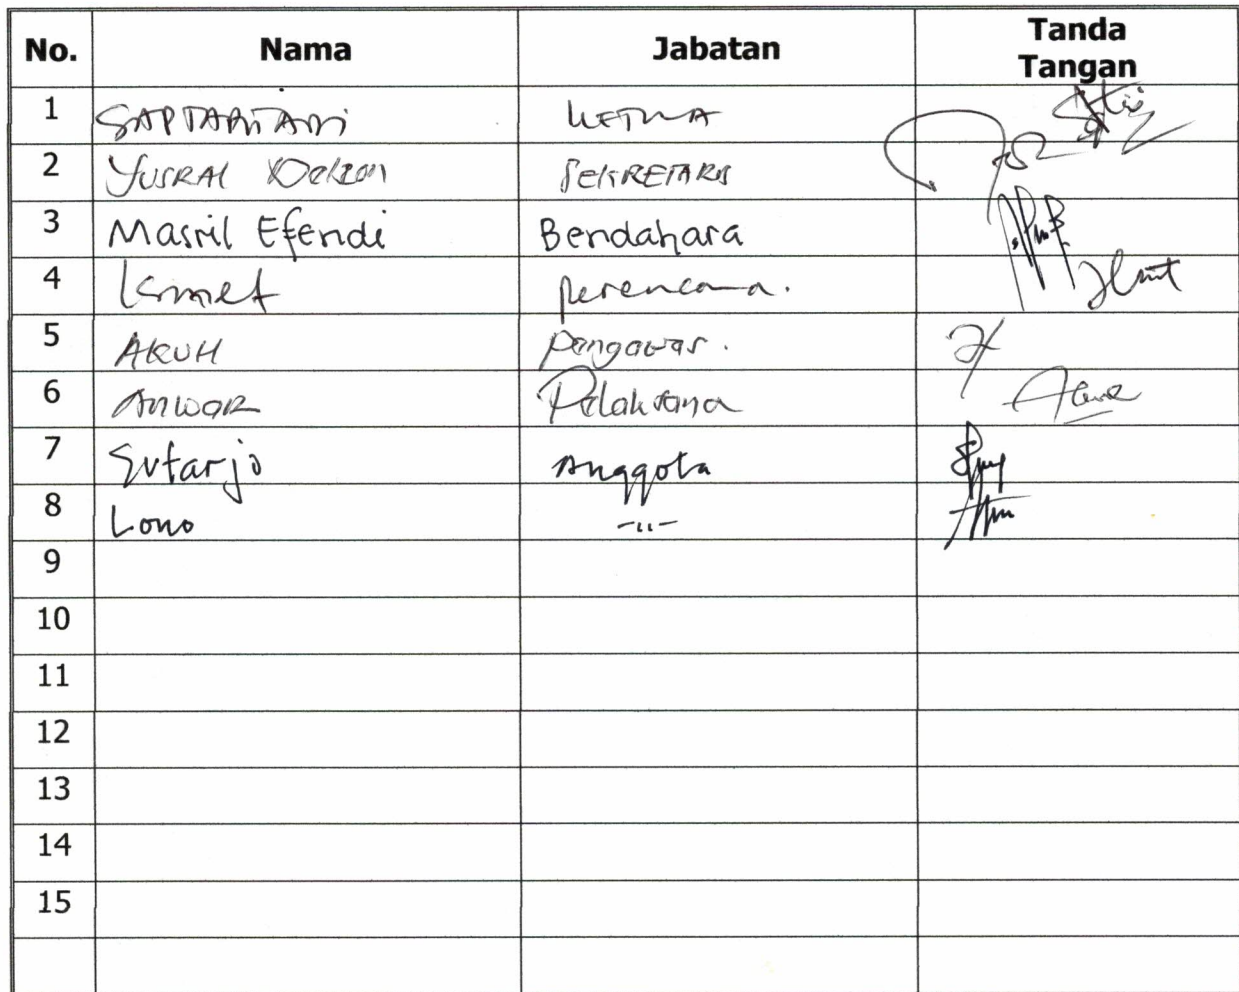 No. Nama Jabatan Tanda Tangan
1 SAPTARITARI KETUA
2 YUSRAL SEKRETARIS
3 Masril Efendi Bendahara
4 Ismet perencana.
5 AKUH pengawas.
6 ANWAR Pelaksana
7 Sutarjo Anggota
8 Lono -11-
9
10
11
12
13
14
15